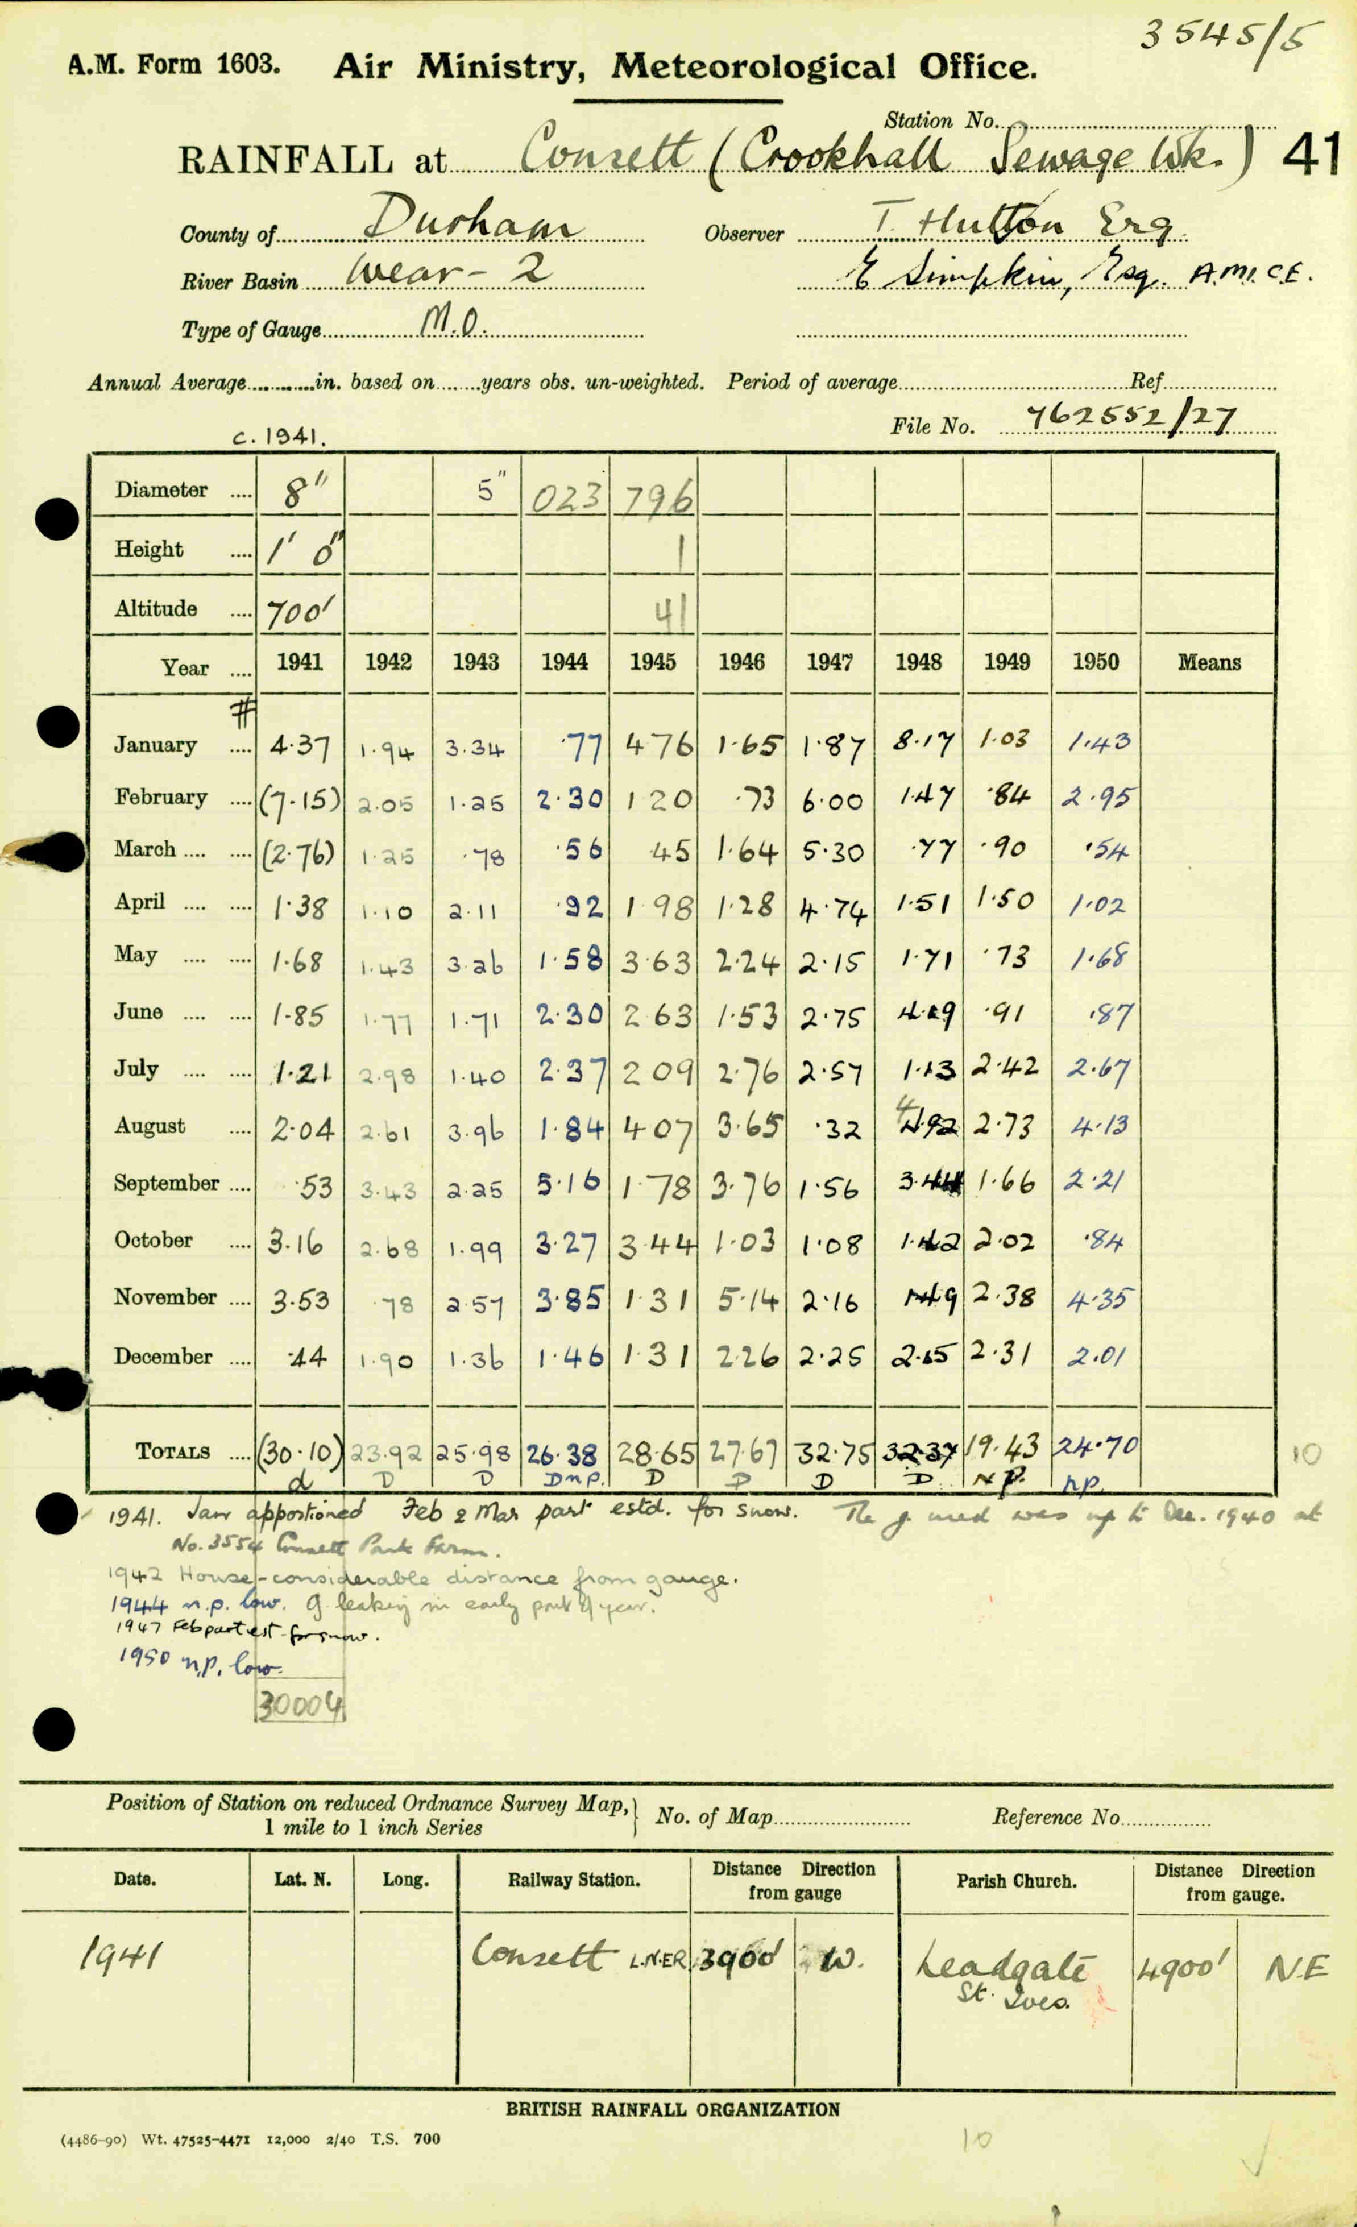 3545/5
A.M. Form 1603. Air Ministry, Meteorological Office.
Station No.
RAINFALL at Consett (Crookhall Sewage Wk.) 41
County of Durham Observer T. Hutton Esq
River Basin Wear - 2 E Simpkin, Esq. A.M.I.C.E.
Type of Gauge M.O.
Annual Average in. based on years obs. un-weighted. Period of average Ref
File No. 762552/27
c. 1941.
Diameter 8" 5" 023 796
Height 1' 0" 1
Altitude 700' 41
Year 1941 1942 1943 1944 1945 1946 1947 1948 1949 1950 Means
#
January 4.37 1.94 3.34 .77 4 76 1.65 1.87 8.17 1.03 1.43
February (7.15) 2.05 1.25 2.30 1 20 .73 6.00 1.47 .84 2.95
March (2.76) 1.25 .78 .56 45 1.64 5.30 .77 .90 .54
April 1.38 1.10 2.11 .92 1 98 1.28 4.74 1.51 1.50 1.02
May 1.68 1.43 3.26 1.58 3 63 2.24 2.15 1.71 .73 1.68
June 1.85 1.77 1.71 2.30 2 63 1.53 2.75 4.19 .91 .87
July 1.21 2.98 1.40 2.37 2 09 2.76 2.57 1.13 2.42 2.67
August 2.04 2.61 3.96 1.84 4 07 3.65 .32 4.92 2.73 4.13
September .53 3.43 2.25 5.16 1 78 3.76 1.56 3.44 1.66 2.21
October 3.16 2.68 1.99 3.27 3 44 1.03 1.08 1.42 2.02 .84
November 3.53 .78 2.57 3.85 1 31 5.14 2.16 1.49 2.38 4.35
December .44 1.90 1.36 1.46 1 31 2 26 2.25 2.15 2.31 2.01
TOTALS (30.10) 23.92 25.98 26.38 28.65 27.67 32.75 32.37 19.43 24.70 10
d D D D n.p. D D D D n.p. n.p.
1941. Jan apportioned Feb & Mar part estd. for snow. The g. used was up to Dec. 1940 at
No. 3554 Consett Park Farm.
1942 House - considerable distance from gauge.
1944 n.p. low. G leaking in early part of year.
1947 Feb part est for snow.
1950 n.p. low.
30004
Position of Station on reduced Ordnance Survey Map,
1 mile to 1 inch Series
No. of Map Reference No.
Date. Lat. N. Long. Railway Station. Distance Direction from gauge Parish Church. Distance Direction from gauge.
1941 Consett L.N.E.R. 3900' W. Leadgate 4900' N.E
St. Ives.
BRITISH RAINFALL ORGANIZATION
(4486-90) Wt. 47525-4471 12,000 2/40 T.S. 700
10